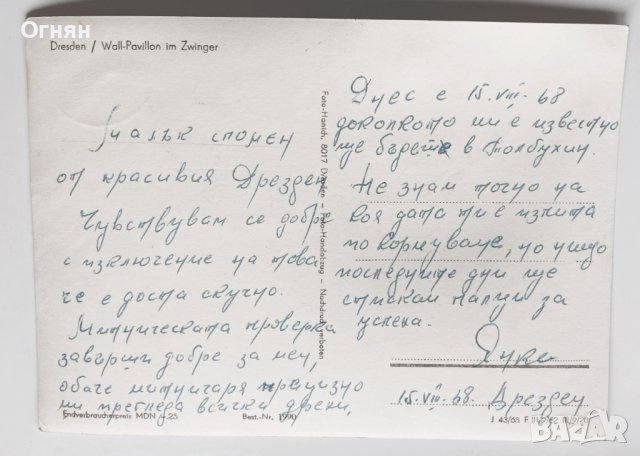 Огнян
Dresden / Wall-Pavillon im Zwinger
Малък спомен
от красивия Дрезден
Чувствувам се добре
с изключение на това
че е доста скучно.
Митническата проверка
завърши добре за мен,
обаче митничаря прецизно
ми прегледа всички дрехи,
Endverbraucherpreis MDN 0.25
Best.-Nr. 1990
Foto-Hanich, 8017 Dresden – Foto-Handabzug – Nachdruck verboten
Днес е 15.VIII.68
доколкото ми е известно
ще бъдете в Толбухин.
Не знам точно на
коя дата ти е изпита
по кормуване, но нищо
последните дни ще
стискам палци за
успеха.
15.VIII.68. Дрезден
J 43/68 F
BAZAR